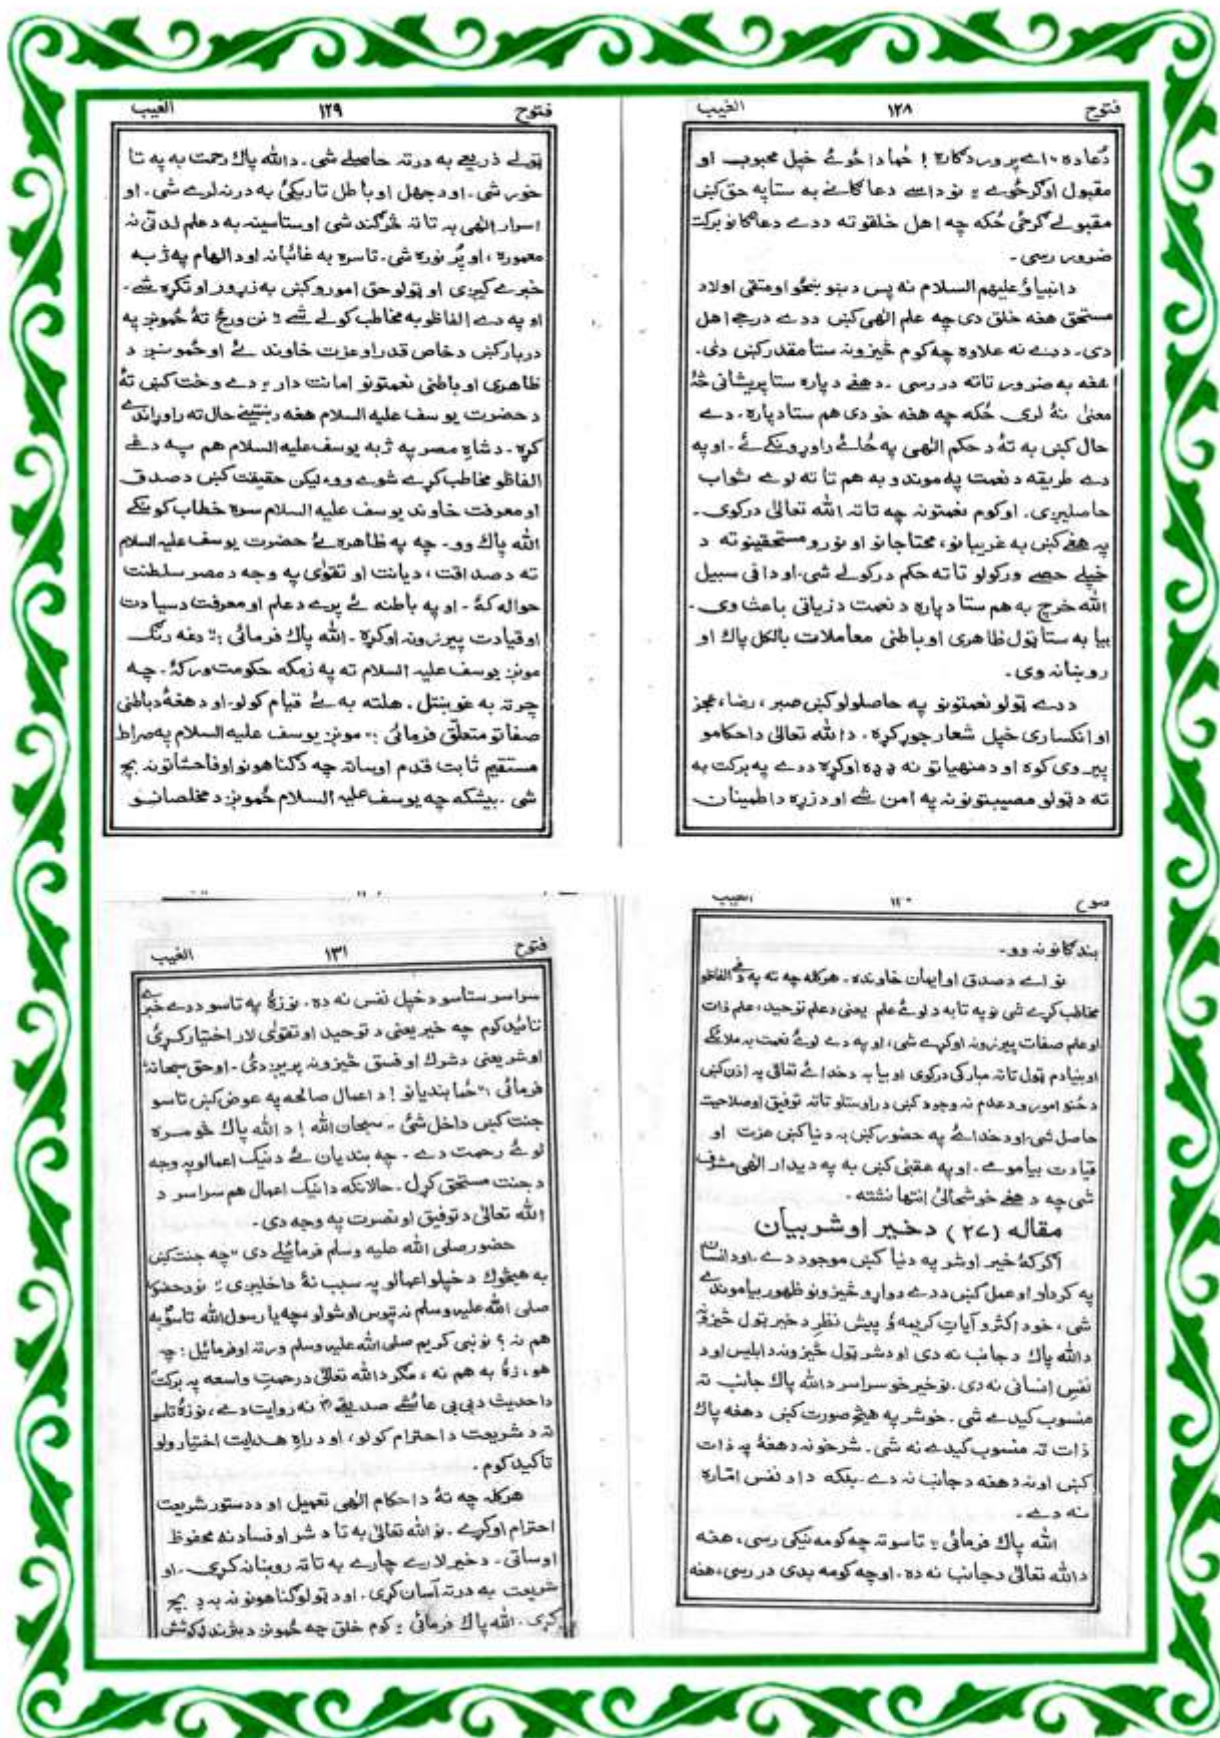 فتوح ۱۲۸ الغیب
دُعا ده ‎،، اے پروردګاره ! ځما دا ځوئے خپل محبوب او
مقبول اوګرځوے ؛ نو داسے دعا ګانے به ستا په حق کښ
مقبولے ګرځی ځکه چه اهل خلقو ته د دے دعا ګانو برکت
ضرور رسی -
د انبیاؤ علیهم السلام نه پس د ښو ښځو او متقی اولاد
مستحق هغه خلق دی چه علم الٰهی کښ د دے درجے اهل
دی. د دے نه علاوه چه کوم څیزونه ستا مقدر کښ دی.
هغه به ضرور تا ته در رسی . د هغے دپاره ستا پریشانی څه
معنیٰ نهٔ لری ځکه چه هغه خو دی هم ستا دپاره. دے
حال کښ به تهٔ د حکم الٰهی په ځائے راوړونکے ئے . او په
دے طریقه د نعمت په موندو به هم تا ته لوے ثواب
حاصلیږی. او کوم نعمتونه چه تا ته الله تعالیٰ درکوی -
په هغے کښ به غریبانو، محتاجانو او نورو مستحقینو ته د
خپلے حصے ورکولو تا ته حکم درکولے شی. او دا فی سبیل
الله خرچ به هم ستا دپاره د نعمت د زیاتی باعث وی -
بیا به ستا ټول ظاهری او باطنی معاملات بالکل پاك او
روښانه وی .
د دے ټولو نعمتونو په حاصلولو کښ صبر ، رضا، عجز
او انکساری خپل شعار جوړ کړه . د الله تعالیٰ د احکامو
پیروی کوه او د منهیاتو نه ډډه اوکړه د دے په برکت به
ته د ټولو مصیبتونو نه په امن شے او د زړه د اطمینان
فتوح ۱۲۹ الغیب
ټولے ذریعے به درته حاصلے شی . د الله پاك رحمت به په تا
خور شی . او د جهل او باطل تاریکیٔ به درنه لرے شی . او
اسرار الٰهی به تا ته څرګند شی او ستا سینه به د علم لدنی نه
معموره ، او پُر نوره شی . تا سره به غائبانه او د الهام په ژبه
خبرے کیږی او ټولو حق امورو کښ به زړور او تکړه شے -
او په دے الفاظو به مخاطب کولے شے ؛ نن ورځ تهٔ ځمونږ په
دربار کښ د خاص قدر او عزت خاوند ئے او ځمونږ د
ظاهری او باطنی نعمتونو امانت دار ؛ دے وخت کښ تهٔ
د حضرت یوسف علیه السلام هغه رښتینے حال ته راوړاندے
کړه . د شاهِ مصر په ژبه یوسف علیه السلام هم په دغے
الفاظو مخاطب کړے شوے وو، لیکن حقیقت کښ د صدق
او معرفت خاوند یوسف علیه السلام سره خطاب کونکے
الله پاك وو - چه په ظاهره ئے حضرت یوسف علیه السلام
ته د صداقت ، دیانت او تقوٰی په وجه د مصر سلطنت
حواله کهٔ . او په باطنه ئے پرے د علم او معرفت د سیادت
او قیادت پیرزونه اوکړه . الله پاك فرمائی ؛ دغه رنګ
مونږ یوسف علیه السلام ته په زمکه حکومت ورکهٔ . چه
چرته به غوښتل . هلته به ئے قیام کولو. او د هغهٔ د باطنی
صفاتو متعلّق فرمائی ؛ مونږ یوسف علیه السلام په صراط
مستقیم ثابت قدم اوساته چه د ګناهونو او فاحشاتو نه بچ
شی . بیشکه چه یوسف علیه السلام ځمونږ د مخلصانو
۱۳۰ الغیب
بندګانو نه وو -
نو اے د صدق او ایمان خاونده . هرکله چه ته په دغے الفاظو
مخاطب کړے شی نو په تا به د لوئے علم یعنی د علم توحید، علم ذات
او علم صفات پیرزونه اوکړے شی، او په دے لوئے نعمت به ملائکے
او بنیادم ټول تا ته مبارکی درکوی او بیا به د خدائے تعالیٰ په اذن کښ
د ځنو امورو د عدم نه وجود کښ د راوستلو تا ته توفیق او صلاحیت
حاصل شی. او د خدائے په حضور کښ به دنیا کښ عزت او
قیادت بیامومے . او په عقبیٰ کښ به په دیدار الٰهی مشرف
شی چه د هغے خوشحالیٔ انتها نشته -
مقاله (۲۷) د خیر او شر بیان
اګر که خیر او شر په دنیا کښ موجود دے. او د انسان
په کردار او عمل کښ د دے دواړو څیزونو ظهور بیاموندے
شی ، خو د اکثرو آیات کریمه ؤ پیش نظر د خیر ټول څیزونه
د الله پاك د جانب نه دی او د شر ټول څیزونه د ابلیس او د
نفس اِنسانی نه دی. نو خیر خو سراسر د الله پاك جانب ته
منسوب کیدے شی. خو شر په هیڅ صورت کښ د هغه پاك
ذات ته منسوب کیدے نه شی. شر خو نه د هغهٔ په ذات
کښ او نه د هغه د جانب نه دے . بلکه دا د نفس امّاره
نه دے .
الله پاك فرمائی ؛ تاسو ته چه کومه نیکی رسی، هغه
د الله تعالیٰ د جانب نه ده. او چه کومه بدی در رسی، هغه
فتوح ۱۳۱ الغیب
سراسر ستاسو د خپل نفس نه ده . نو زهٔ په تاسو د دے خبرے
تائید کوم چه خیر یعنی د توحید او تقوٰی لار اختیار کړئ
او شر یعنی د شرك او فسق څیزونه پریږدئ . او حق سبحانهٔ
فرمائی ؛ ځما بندیانو ! د اعمال صالحه په عوض کښ تاسو
جنت کښ داخل شئ . سبحان الله ! د الله پاك څومره
لوئے رحمت دے . چه بندیان ئے د نیک اعمالو په وجه
د جنت مستحق کړل . حالانکه دا نیک اعمال هم سراسر د
الله تعالیٰ د توفیق او نصرت په وجه دی -
حضور صلی الله علیه وسلم فرمائیلے دی " چه جنت کښ
به هیڅوك د خپلو اعمالو په سبب نهٔ داخلیږی ؛ نو د حضور
صلی الله علیه وسلم نه تپوس اوشولو چه یا رسول الله تاسو به
هم نه ؟ نو نبی کریم صلی الله علیه وسلم ورته اوفرمائیل ؛ چه
هو، زهٔ به هم نه ، مګر د الله تعالیٰ د رحمتِ واسعه په برکت
دا حدیث د بی بی عائشے صدیقے نه روایت دے، نو زهٔ تاسو
ته د شریعت د احترام کولو، او د راهِ هدایت اختیارولو
تاکید کوم .
هرکله چه تهٔ د احکام الٰهی تعمیل او د دستور شریعت
احترام اوکړے . نو الله تعالیٰ به تا د شر او فساد نه محفوظ
اوساتی . د خیر لارے چارے به تا ته روښانه کړی . او
شریعت به درته آسان کړی . او د ټولو ګناهونو نه به دِ بچ
کړی . الله پاك فرمائی ؛ کوم خلق چه ځمونږ د پیژندلو کوشش